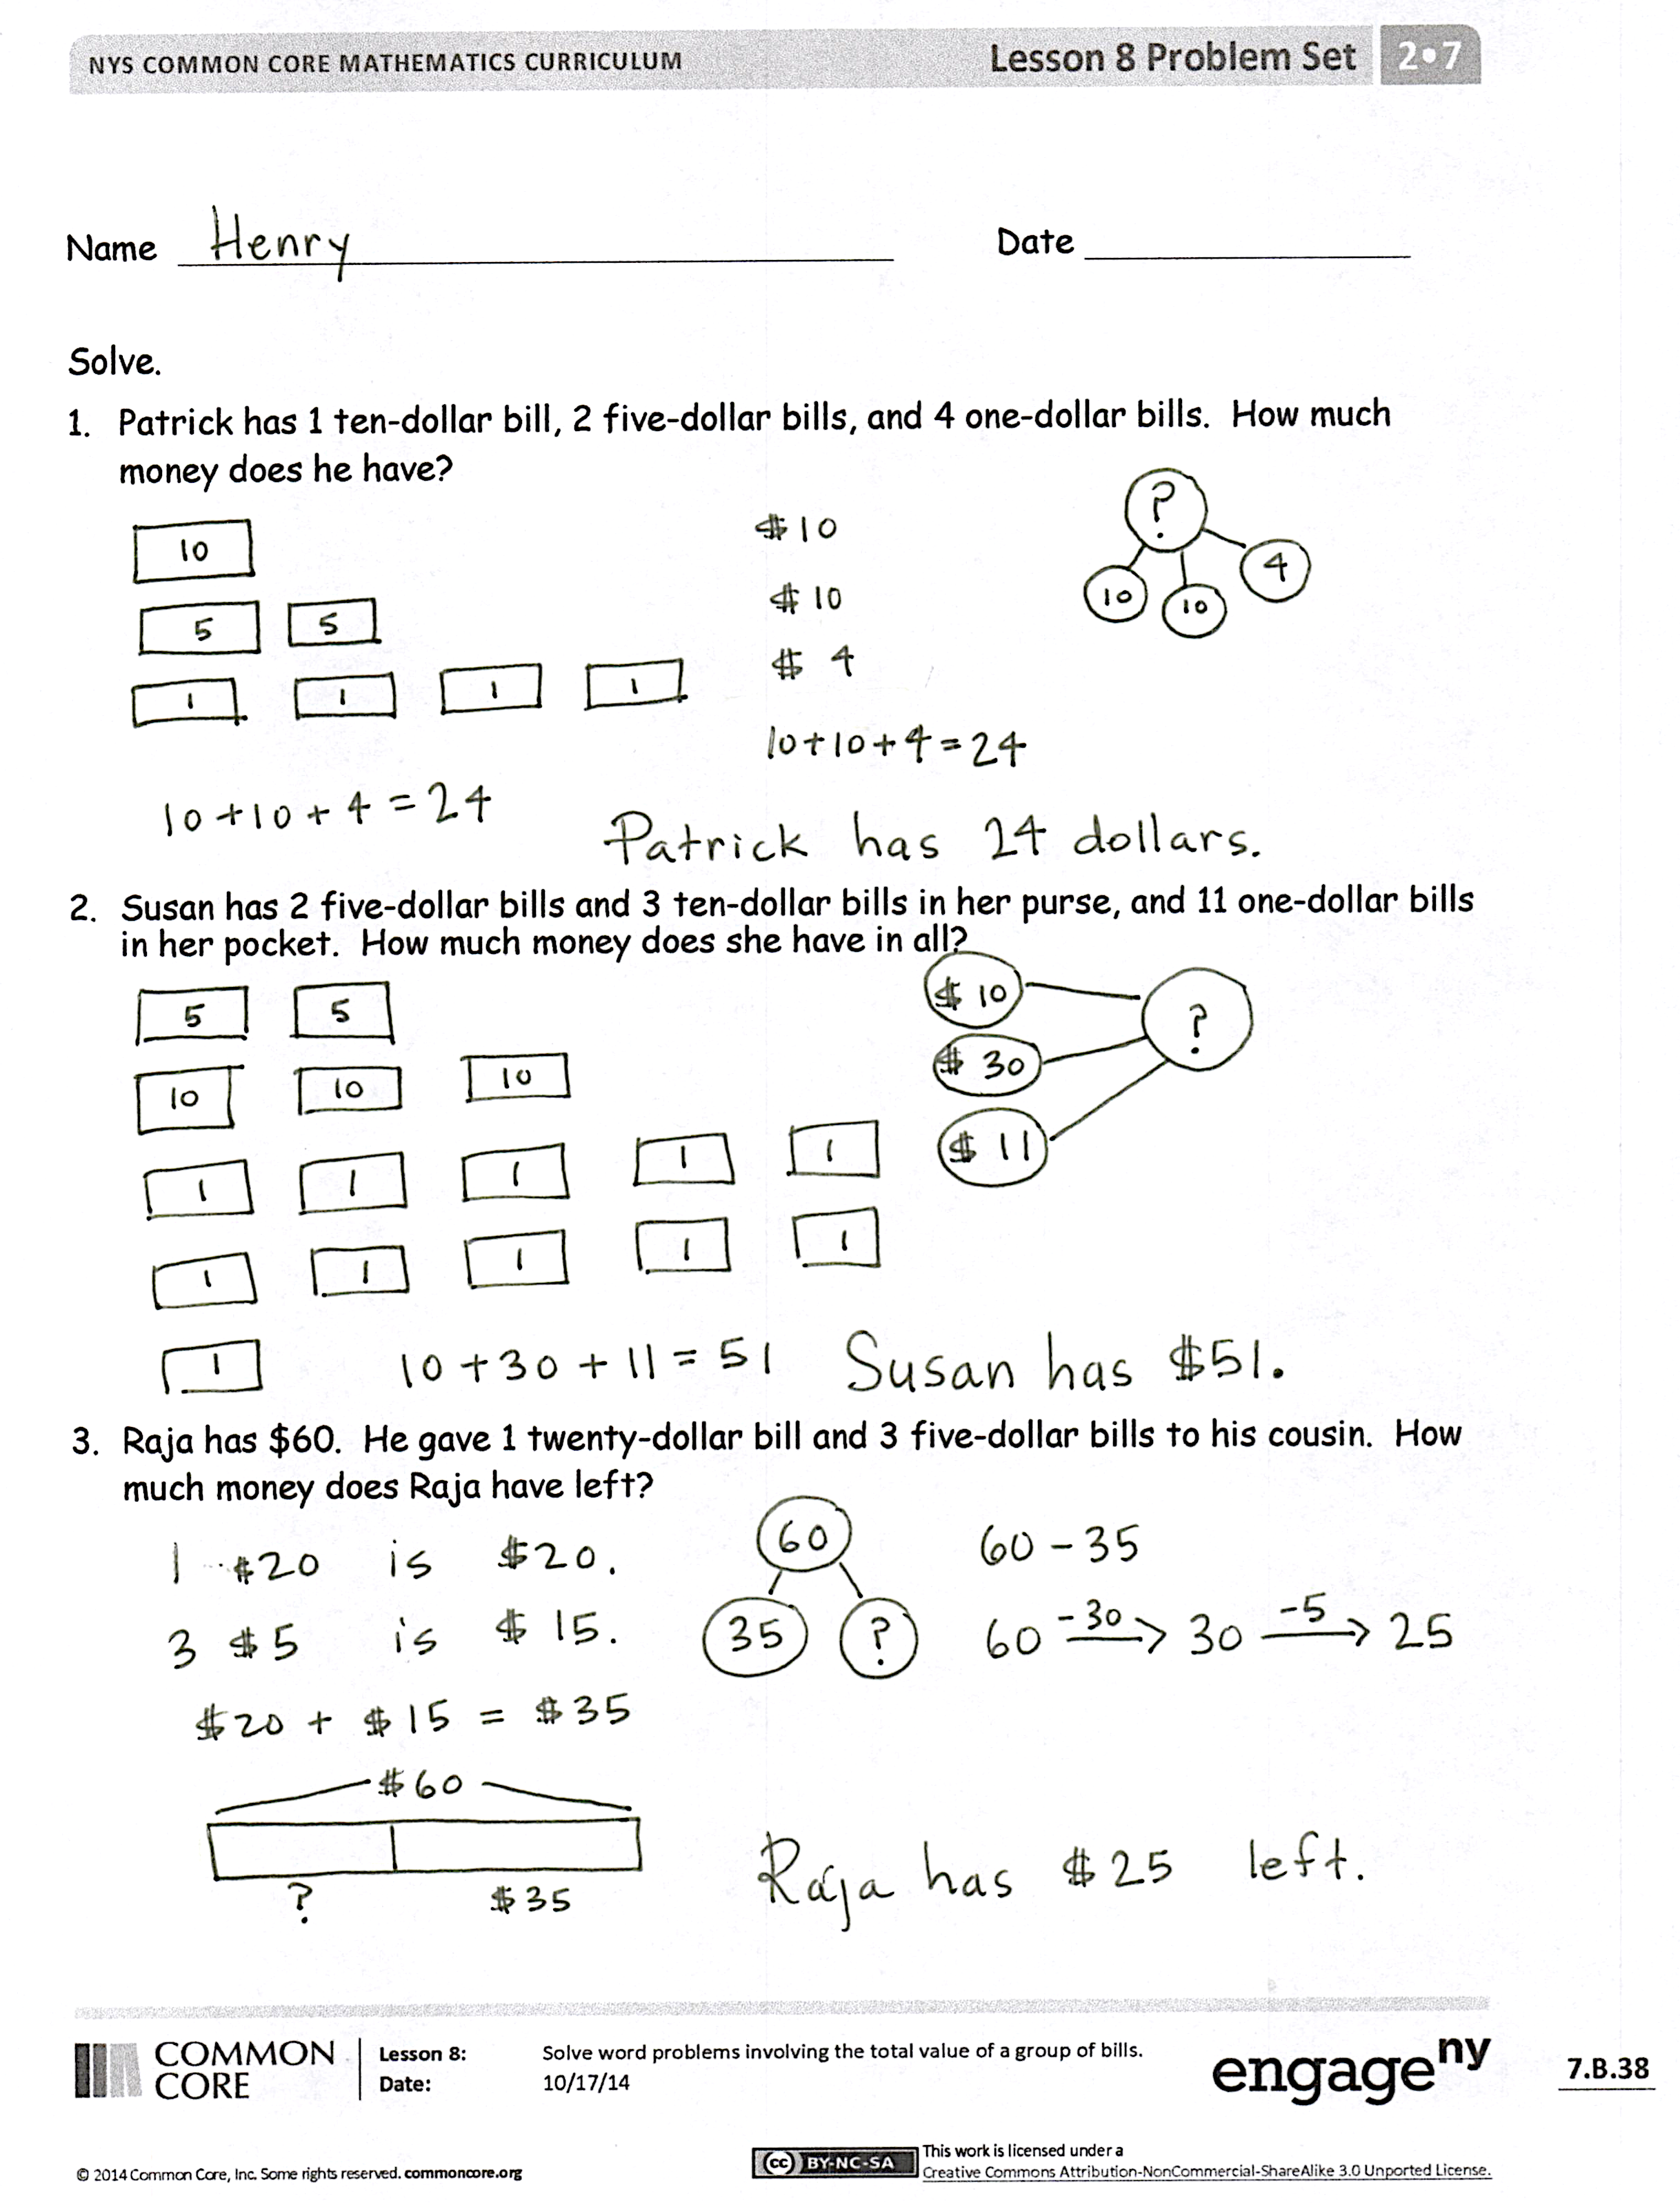 NYS COMMON CORE MATHEMATICS CURRICULUM
Lesson 8 Problem Set 2•7
Name Henry Date
Solve.
1. Patrick has 1 ten-dollar bill, 2 five-dollar bills, and 4 one-dollar bills. How much
money does he have?
10
5 5
1 1 1 1
10+10+4=24
$10
$10
$ 4
10+10+4=24
?
10 10 4
Patrick has 24 dollars.
2. Susan has 2 five-dollar bills and 3 ten-dollar bills in her purse, and 11 one-dollar bills
in her pocket. How much money does she have in all?
5 5
10 10 10
1 1 1 1 1
1 1 1 1 1
1
$ 10
$ 30
$ 11
?
10+30+11=51
Susan has $51.
3. Raja has $60. He gave 1 twenty-dollar bill and 3 five-dollar bills to his cousin. How
much money does Raja have left?
1 $20 is $20.
3 $5 is $ 15.
$20 + $15 = $35
60
35 ?
60-35
60 -30 → 30 -5 → 25
$60
? $35
Raja has $25 left.
COMMON
CORE
Lesson 8: Solve word problems involving the total value of a group of bills.
Date: 10/17/14
engage ny
7.B.38
© 2014 Common Core, Inc. Some rights reserved. commoncore.org
cc BY-NC-SA
This work is licensed under a
Creative Commons Attribution-NonCommercial-ShareAlike 3.0 Unported License.